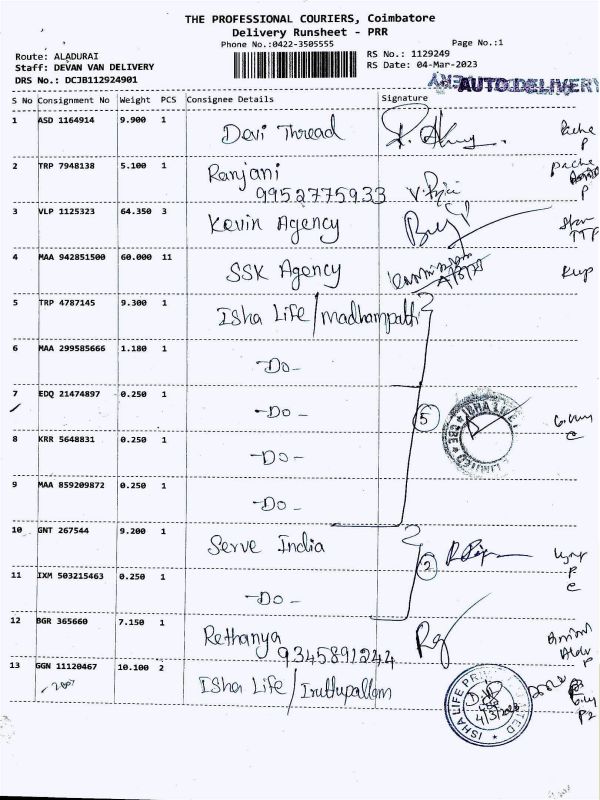 THE PROFESSIONAL COURIERS, Coimbatore
Delivery Runsheet - PRR
Phone No.:0422-3505555
Page No.:1
Route: ALADURAI
Staff: DEVAN VAN DELIVERY
DRS No.: DCJB112924901
RS No.: 1129249
RS Date: 04-Mar-2023
AUTO DELIVERY
S No Consignment No Weight PCS Consignee Details Signature
1 ASD 1164914 9.900 1 Devi Thread
2 TRP 7948138 5.100 1 Ranjani
9952775933
3 VLP 1125323 64.350 3 Kevin Agency
4 MAA 942851500 60.000 11 SSK Agency
5 TRP 4787145 9.300 1 Isha Life/madhampatti
6 MAA 299585666 1.180 1 -Do-
7 EDQ 21474897 0.250 1 -Do- 5
8 KRR 5648831 0.250 1 -Do-
9 MAA 859209872 0.250 1 -Do-
10 GNT 267544 9.200 1 Serve India 2
11 IXM 503215463 0.250 1 -Do-
12 BGR 365660 7.150 1 Rethanya
9345891244
13 GGN 11120467 10.100 2 Isha Life/Iruttupallam
ISHA LIFE PRIVATE LIMITED
4/3/2023